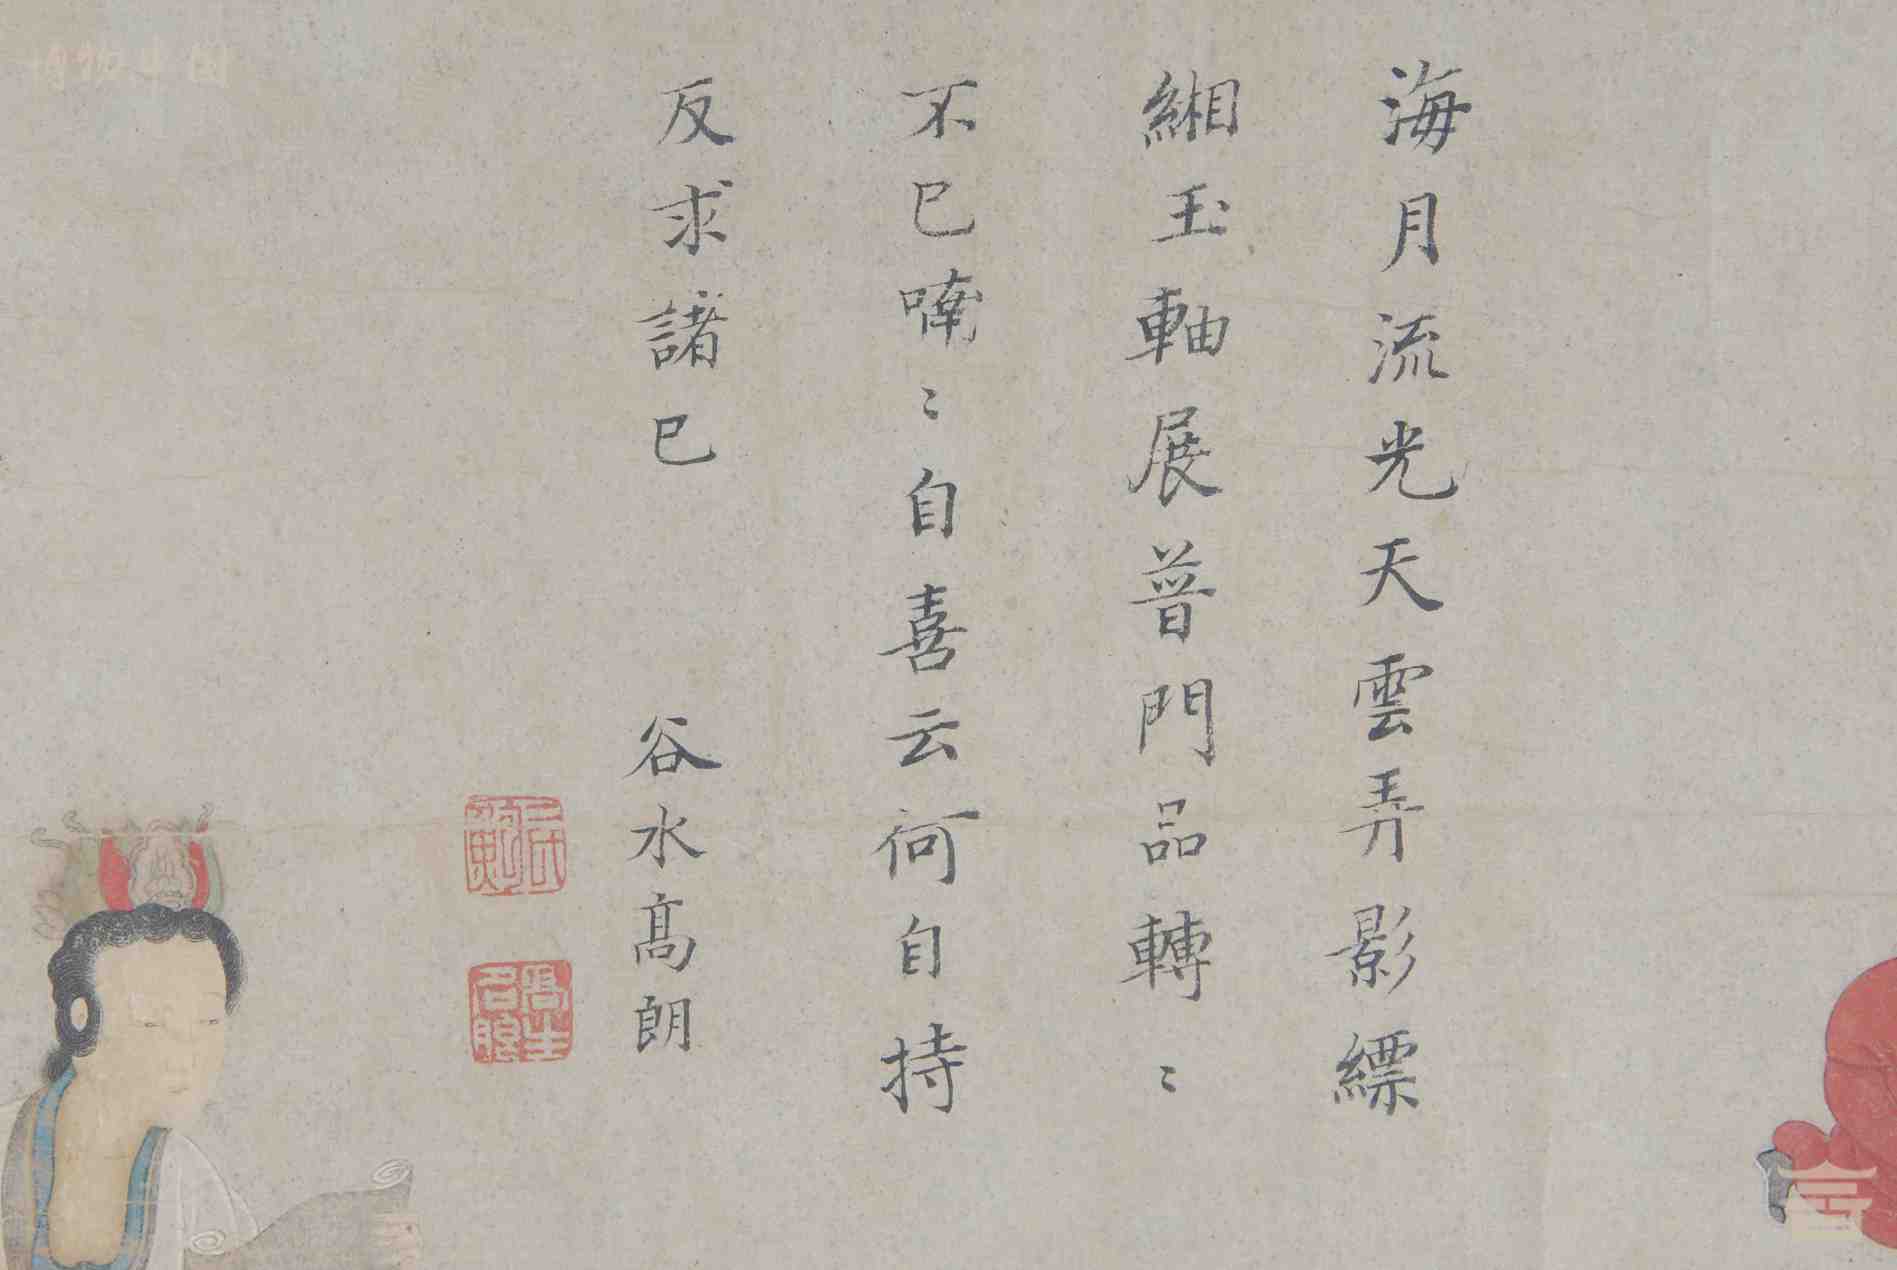 海月流光天雲弄影縹
緗玉軸展普門品轉〻
不已喃〻自喜云何自持
反求諸已
谷水高朗